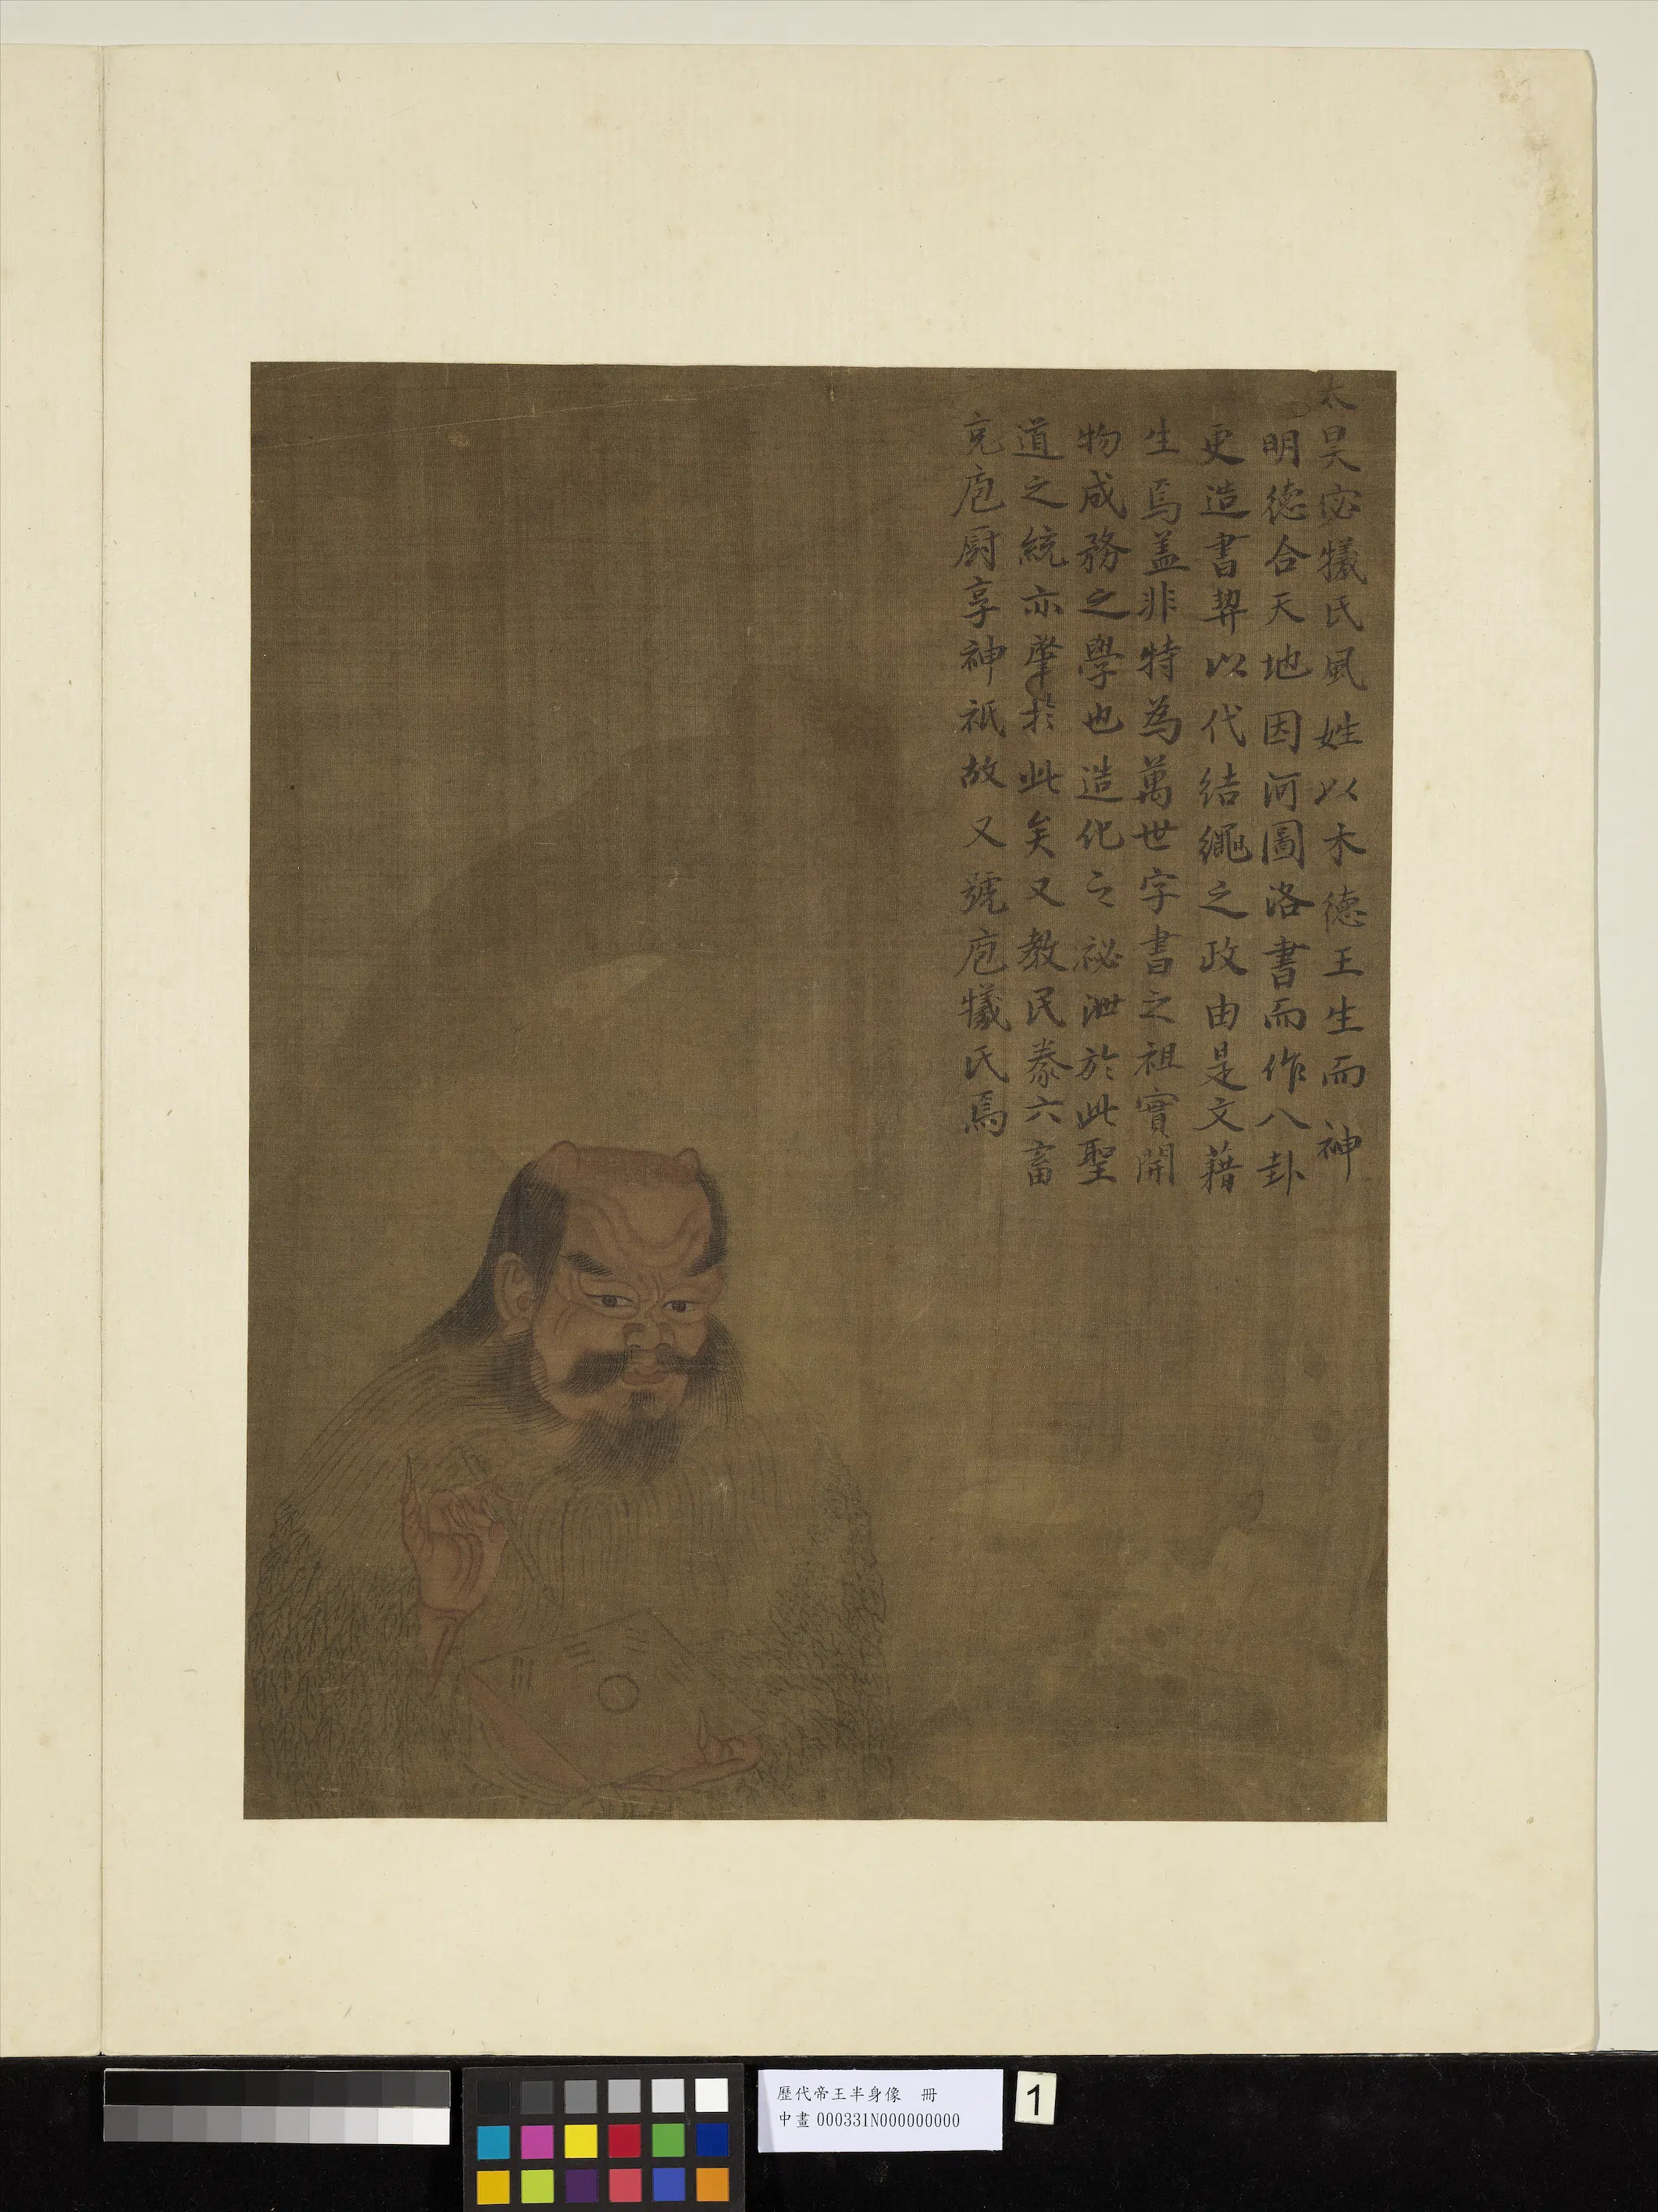 太昊宓犧氏風姓以木德王生而神
明德合天地因河圖洛書而作八卦
更造書契以代結繩之政由是文藉
生焉盖非特為萬世字書之祖實開
物成務之學也造化之祕泄於此聖
道之統亦肇於此矣又教民豢六畜
充庖厨享神祇故又號庖犧氏焉
歷代帝王半身像 冊
中畫 000331N000000000
1